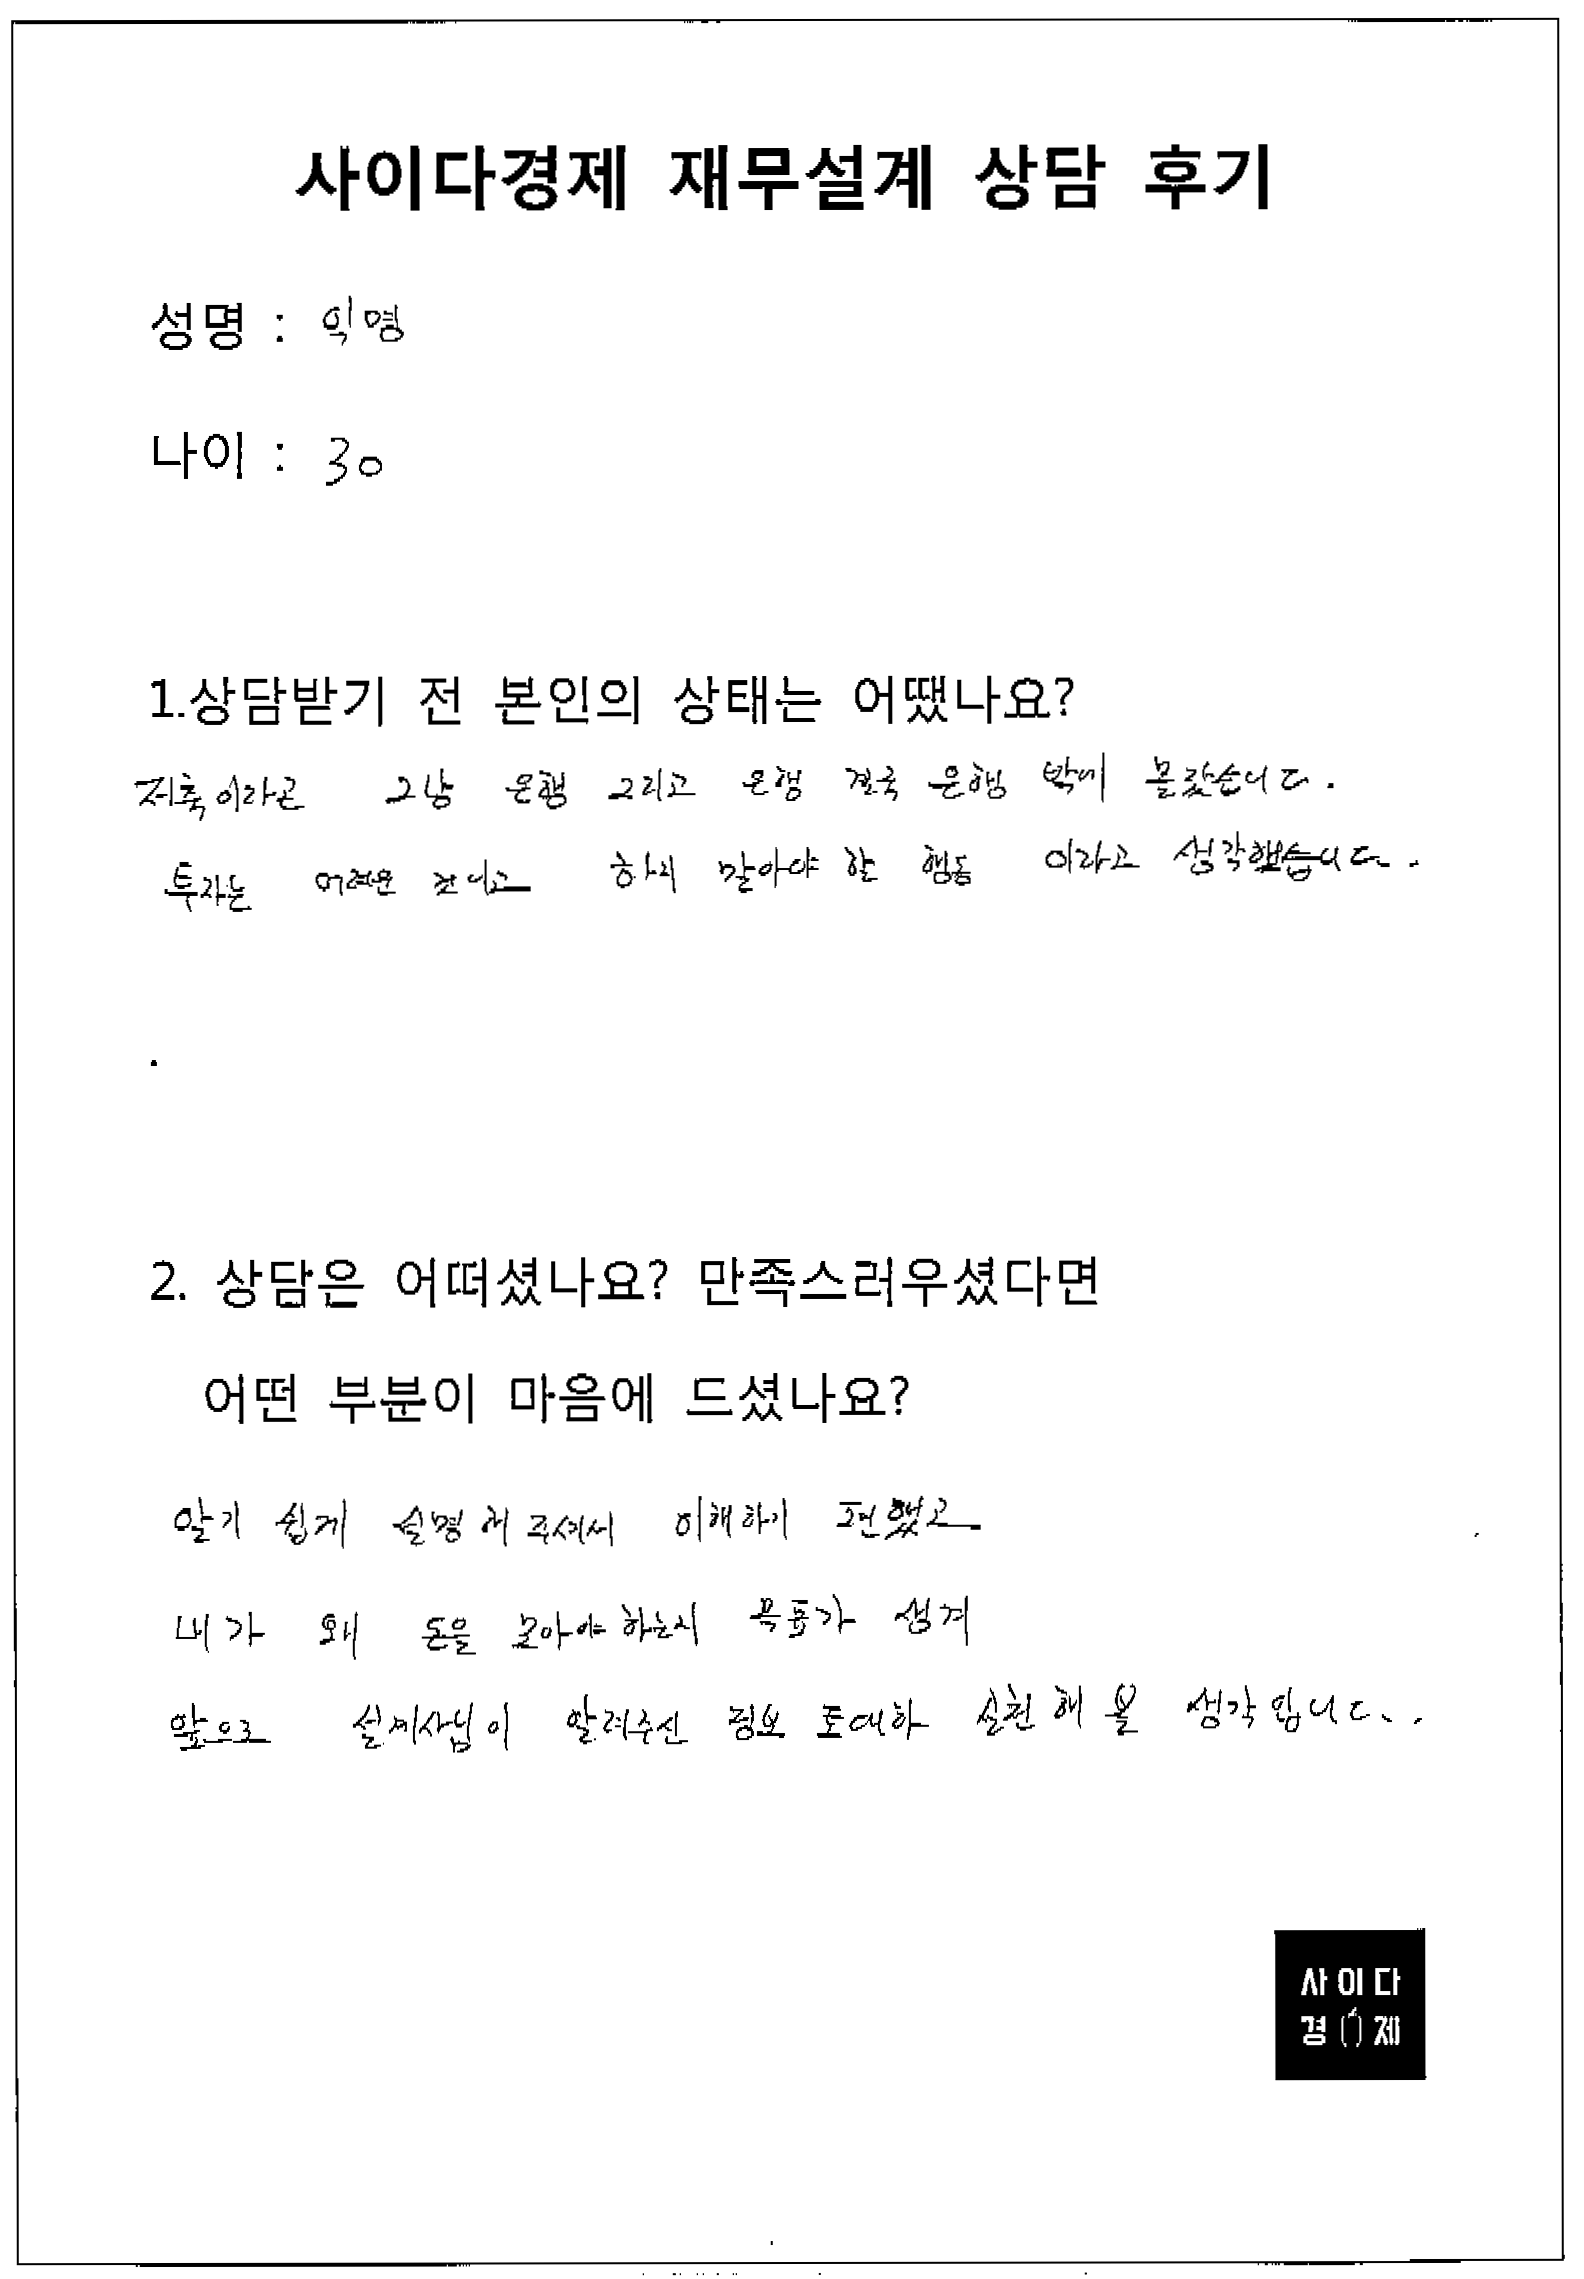 사이다경제 재무설계 상담 후기
성명 : 익명
나이 : 30
1.상담받기 전 본인의 상태는 어땠나요?
저축이라곤 그냥 은행 그리고 은행 결국 은행 밖에 몰랐습니다.
투자는 어려운 것이고 하지 말아야 할 행동 이라고 생각했습니다.
2. 상담은 어떠셨나요? 만족스러우셨다면
어떤 부분이 마음에 드셨나요?
알기 쉽게 설명해 주셔서 이해하기 편했고
내가 왜 돈을 모아야 하는지 목표가 생겨
앞으로 설계사님이 알려주신 정보 토대하 실천해 볼 생각 입니다..
사이다
경제